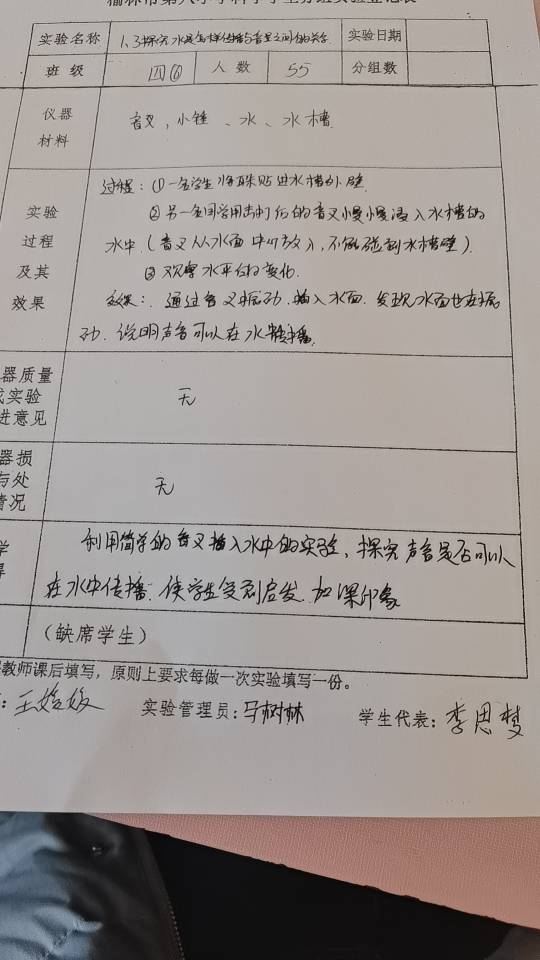 实验名称 1.3探究水是怎样传播与音量之间的关系 实验日期
班级 四(6) 人数 55 分组数
仪器
材料
音叉,小锤、水、水槽
实验
过程
及其
效果
过程:①一名学生将耳朵贴近水槽外壁
②另一名同学用击打后的音叉慢慢浸入水槽的
水中(音叉从水面中心放入,不能碰到水槽壁).
③观察水平面的变化.
效果:通过音叉振动.插入水面.发现水面也在振
动.说明声音可以在水中传播.
器质量
实验
进意见
无
器损
与处
情况
无
学
利用简单的音叉插入水中的实验,探究声音是否可以
在水中传播.使学生受到启发.加深印象
(缺席学生)
教师课后填写,原则上要求每做一次实验填写一份。
实验管理员:马树林 学生代表:李思梦